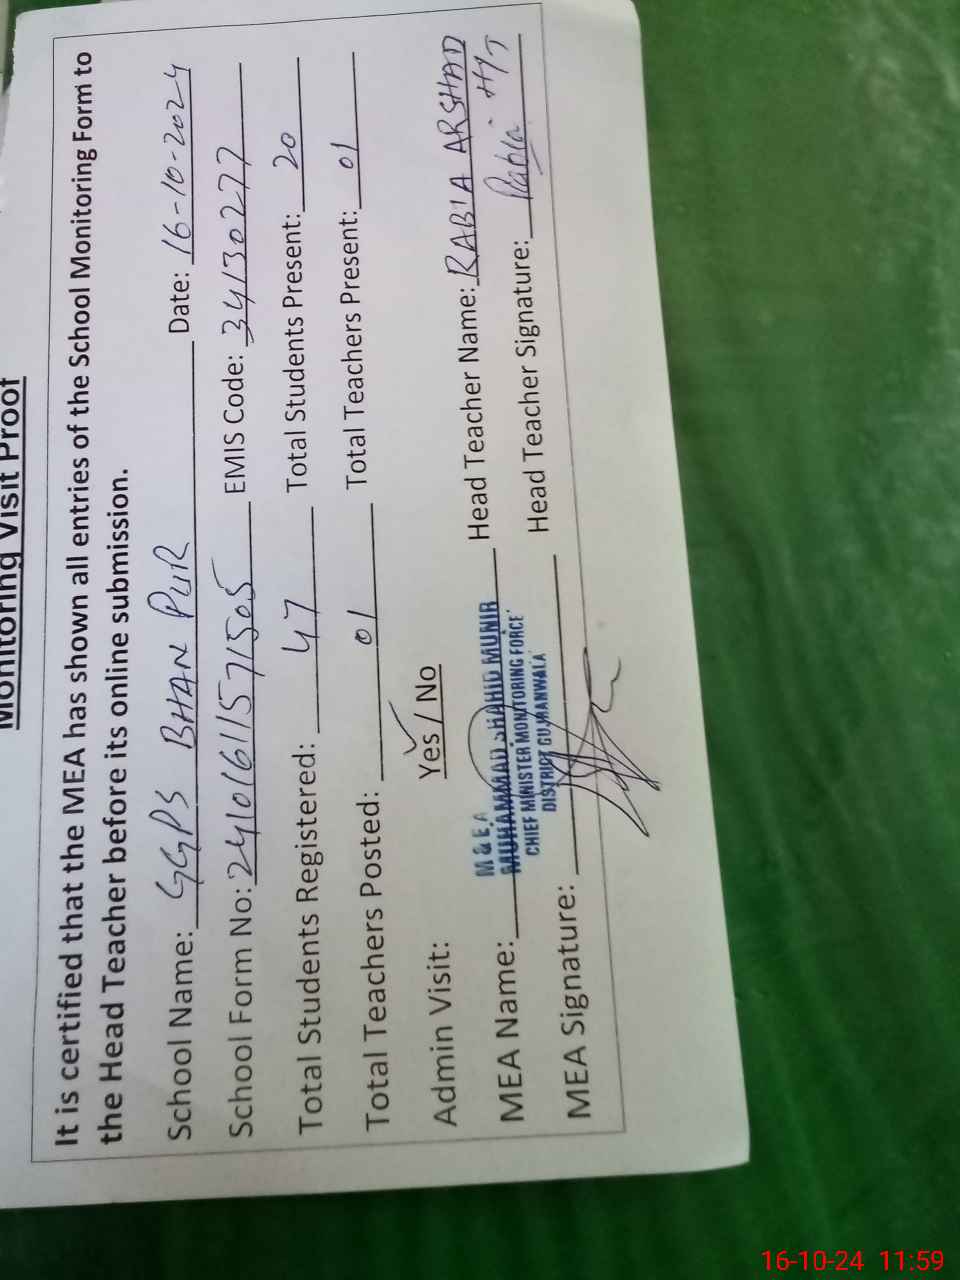 Monitoring Visit Proof
It is certified that the MEA has shown all entries of the School Monitoring Form to
the Head Teacher before its online submission.
School Name: GGPS BHAN PUR Date: 16-10-2024
School Form No: 24101611571505 EMIS Code: 34130277
Total Students Registered: 47 Total Students Present: 20
Total Teachers Posted: 01 Total Teachers Present: 01
Admin Visit: Yes / No
MEA Name: Head Teacher Name: RABIA ARSHAD
M & E.A
MUHAMMAD SHAHID MUNIR
CHIEF MINISTER MONITORING FORCE
DISTRICT GUJRANWALA
MEA Signature: Head Teacher Signature: Rabia H/T
16-10-24 11:59